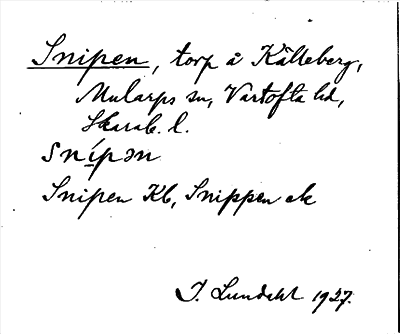 Snipen, torp å Källeberg,
Mularps sn, Vartofta hd,
Skarab. l.
snípən
Snipen Kb, Snippen ek
I. Lundahl 1927.